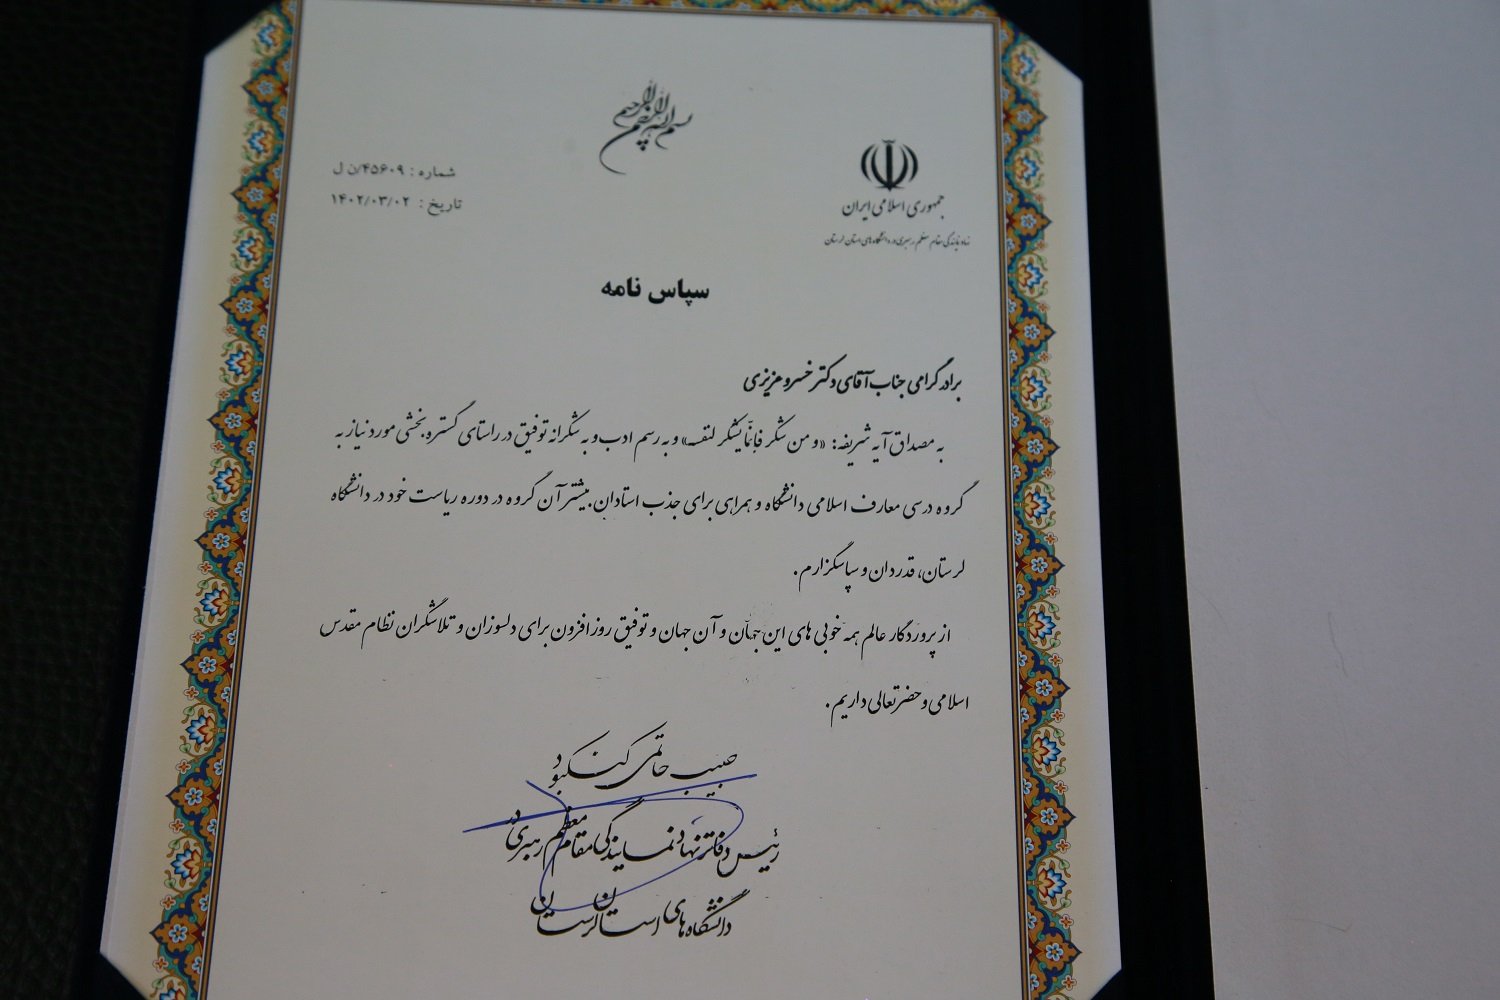 بسم الله الرحمن الرحیم
جمهوری اسلامی ایران
نهاد نمایندگی مقام معظم رهبری در دانشگاه های استان لرستان
شماره : ۴۵۶۰۹/ن ل
تاریخ : ۱۴۰۲/۰۳/۰۲
سپاس نامه
برادر گرامی جناب آقای دکتر خسرو عزیزی
به مصداق آیه شریفه: «و من شکر فانّما یشکر لنفسه» و به رسم ادب و به شکرانه توفیق در راستای گستره بخشی مورد نیاز به
گروه درسی معارف اسلامی دانشگاه و همراهی برای جذب استادان بیشتر آن گروه در دوره ریاست خود در دانشگاه
لرستان، قدردان و سپاسگزارم.
از پروردگار عالم همه خوبی های این جهان و آن جهان و توفیق روز افزون برای دلسوزان و تلاشگران نظام مقدس
اسلامی و حضرتعالی داریم.
حبیب حاتمی کنکبود
رئیس دفاتر نهاد نمایندگی مقام معظم رهبری در
دانشگاه های استان لرستان